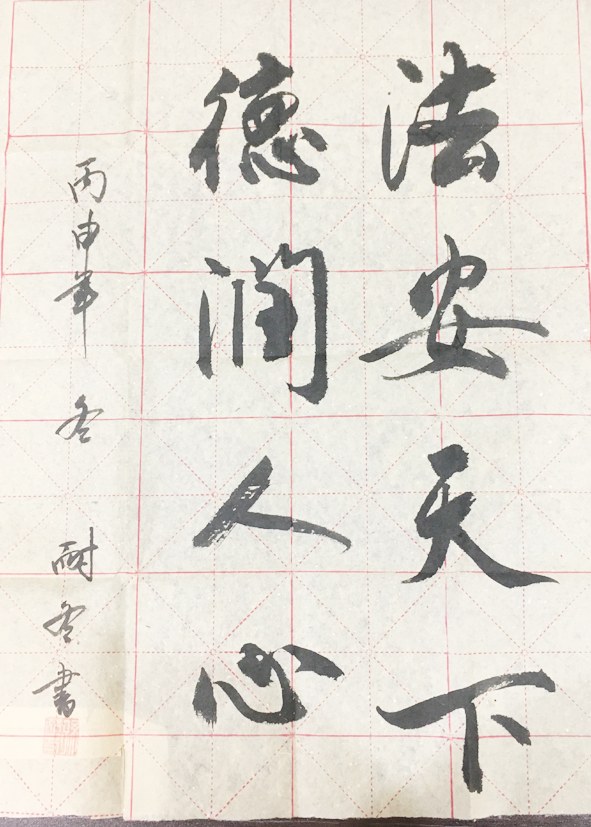 法安天下
德润人心
丙申年 冬 耐冬書